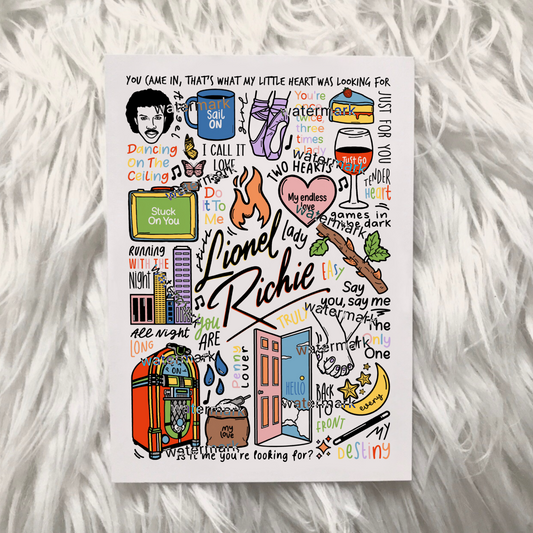 YOU CAME IN, THAT'S WHAT MY LITTLE HEART WAS LOOKING FOR
JUST FOR YOU
watermark
Angel
Sail
ON
girl
You're
once
twice
three
times
a lady
watermark
Dancing
On The
Ceiling
I CALL IT
LOVE
TWO HEARTS
watermark
JUST GO
TENDER
Heart
Stuck
On You
Do
It To
Me
My endless
love
watermark
games in
the dark
Lionel
Richie
lady
EASY
RUNNING
WITH THE
Night
Say
you, say me
All Night
LONG
YOU
ARE
TRULY
watermark
The
Only
One
watermark
watermark
ON
Penny
Lover
HELLO
BACK
TO
FRONT
every
watermark
watermark
my
love
MY
Destiny
watermark
Is it me you're looking for?